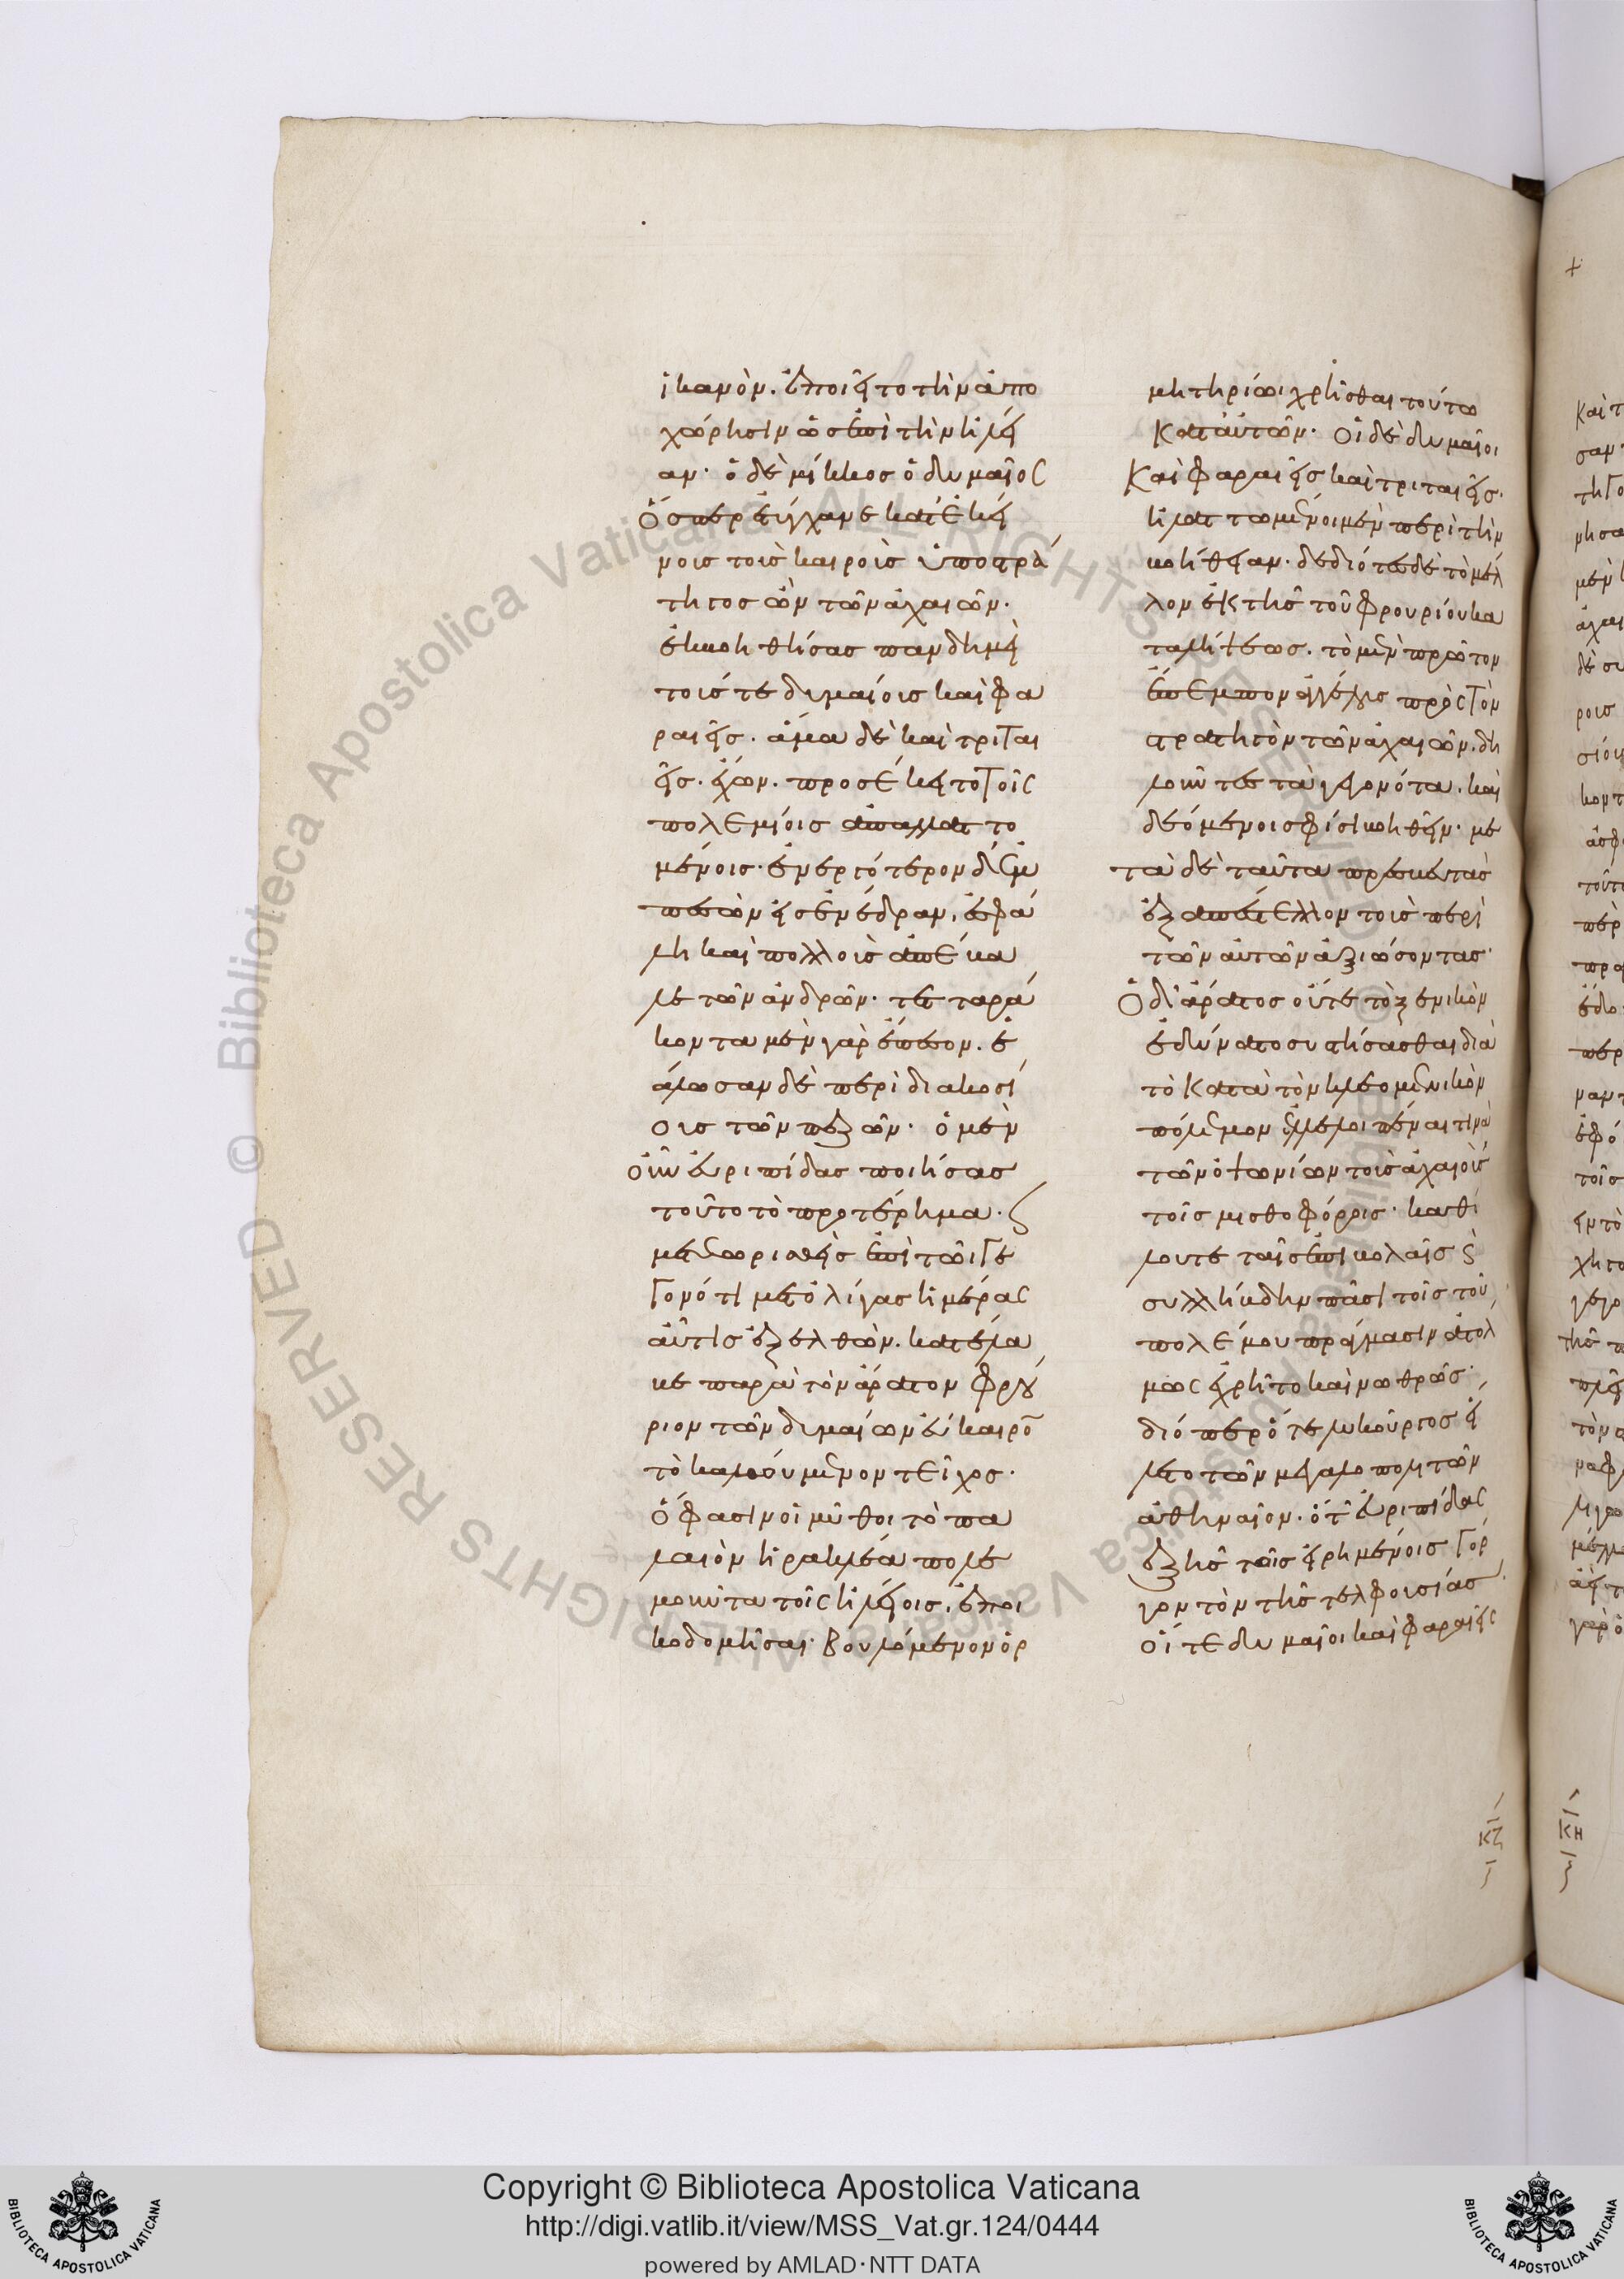 ἱκανὸν. ἐποιεῖτο τὴν ἀπο
χώρησιν ὡς ἐπὶ τὴν ἠλεί
αν· ὁ δὲ μίκκος ὁ δυμαῖος
ὅσπερ ἐτύγχανε κατ' ἐκεί
νους τοὺς καιροὺς ὑποστρά
τηγος ὢν τῶν ἀχαιῶν.
ἐκβοηθήσας πανδημεὶ
τούς τε δυμαίους καὶ φα
ραιεῖς. ἅμα δὲ καὶ τριται
εῖς. ἔχων. προσέκειτο τοῖς
πολεμίοις ἀπαλλαττο
μένοις. ἐνεργότερον δ' ἐμ
πεσὼν εἰς ἐνέδραν. ἐσφά
λη καὶ πολλοὺς ἀπέβα
λε τῶν ἀνδρῶν. τετταρά
κοντα μὲν γὰρ ἔπεσον. ἑ
άλωσαν δὲ περὶ διακοσί
ους τῶν πεζῶν. ὁ μὲν
οὖν εὐριπίδας ποιήσας
τοῦτο τὸ προτέρημα. ϛ
μετεωρισθεὶς ἐπὶ τῶι γε
γονότι μετ' ὀλίγας ἡμέρας
αὖτις ἐξελθὼν. κατέλα
βε παρὰ τὸν ἄρατον φρού
ριον τῶν δυμαίων εὔκαιρον
τὸ καλούμενον τεῖχος.
ὅ φασιν οἱ μῦθοι τὸ πα
λαιὸν ἡρακλέα πολε
μοῦντα τοῖς ἠλείοις. ἐποι
κοδομῆσαι. βουλόμενον ὁρ
μητηρίωι χρῆσθαι τούτω
κατ' αὐτῶν. οἱ δὲ δυμαῖοι
καὶ φαραιεῖς καὶ τριταιεῖς.
ἠλαττωμένοι μὲν περὶ τὴν
βοήθειαν. δεδιότες δὲ τὸ μέλ
λον ἐκ τῆς τοῦ φρουρίου κα
ταλήψεως. τὸ μὲν πρῶτον
ἔπεμπον ἀγγέλους πρὸς τὸν
στρατηγὸν τῶν ἀχαιῶν. δη
λοῦντες τὰ γεγονότα. καὶ
δεόμενοι σφίσι βοηθεῖν. με
τὰ δὲ ταῦτα πρεσβευτὰς
ἐξαπέστελλον τοὺς περὶ
τῶν αὐτῶν ἀξιώσοντας.
ὁ δ' ἄρατος οὔτε τὸ ξενικὸν
ἐδύνατο συστήσασθαι διὰ
τὸ κατὰ τὸν κλεομενικὸν
πόλεμον ἐλλελοιπέναι τινὰ
τῶν ὀψωνίων τοὺς ἀχαιοὺς
τοῖς μισθοφόροις. καθό
λου τε ταῖς ἐπιβολαῖς ϛ
συλλήβδην πᾶσι τοῖς τοῦ
πολέμου πράγμασιν ἀτόλ
μως ἐχρῆτο καὶ νωθρῶς.
διόπερ ὅ τε λυκοῦργος εἷ
λε τὸ τῶν μεγαλοπολιτῶν
ἀθήναιον. ὅ τ' εὐριπίδας
ἑξῆς τοῖς εἰρημένοις γόρ
γον τὸν τῆς τελφουσίας.
οἵ τε δυμαῖοι καὶ φαραιεῖς
ΚΖ
ΚΗ
Copyright © Biblioteca Apostolica Vaticana
http://digi.vatlib.it/view/MSS_Vat.gr.124/0444
powered by AMLAD·NTT DATA